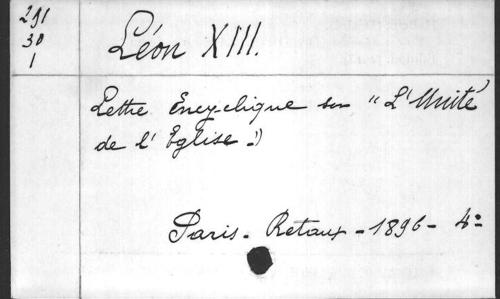 291
30
1
Léon XIII.
Lettre Encyclique sur "L'Unité
de l'Eglise."
Paris - Retaux - 1896 - 4º